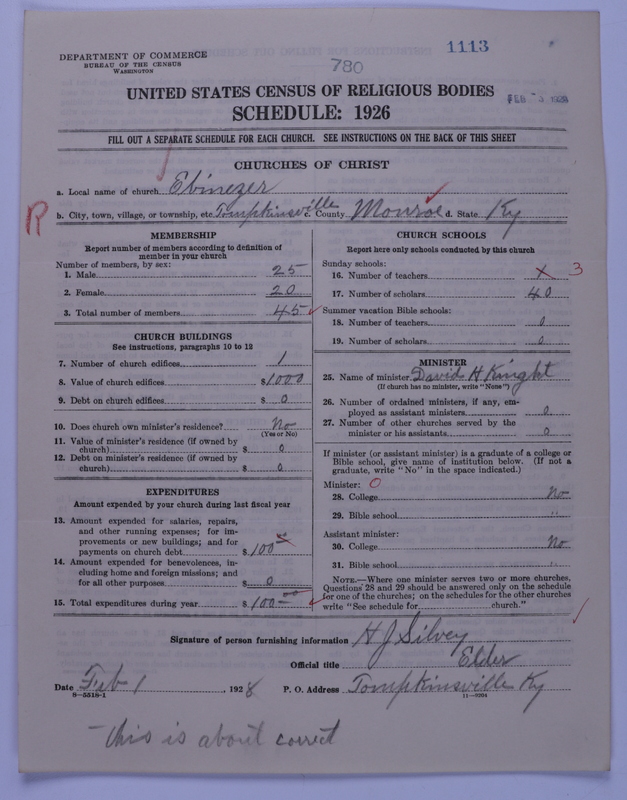 1113
DEPARTMENT OF COMMERCE
BUREAU OF THE CENSUS
WASHINGTON
780
UNITED STATES CENSUS OF RELIGIOUS BODIES
FEB
SCHEDULE: 1926
FILL OUT A SEPARATE SCHEDULE FOR EACH CHURCH. SEE INSTRUCTIONS ON THE BACK OF THIS SHEET
CHURCHES OF CHRIST
a. Local name of church Ebinezer
R
b. City, town, village, or township, etc. Tompkinsville c. County Monroe d. State Ky
MEMBERSHIP
Report number of members according to definition of
member in your church
Number of members, by sex:
1. Male 25
2. Female 20
3. Total number of members 45
CHURCH BUILDINGS
See instructions, paragraphs 10 to 12
7. Number of church edifices 1
8. Value of church edifices $1000
9. Debt on church edifices $ 0
10. Does church own minister's residence? No
(Yes or No)
11. Value of minister's residence (if owned by
church) $ 0
12. Debt on minister's residence (if owned by
church) $ 0
EXPENDITURES
Amount expended by your church during last fiscal year
13. Amount expended for salaries, repairs,
and other running expenses; for im-
provements or new buildings; and for
payments on church debt $100
14. Amount expended for benevolences, in-
cluding home and foreign missions; and
for all other purposes $ 0
15. Total expenditures during year $100
CHURCH SCHOOLS
Report here only schools conducted by this church
Sunday schools:
16. Number of teachers X 3
17. Number of scholars 40
Summer vacation Bible schools:
18. Number of teachers 0
19. Number of scholars 0
MINISTER
25. Name of minister David H Knight
(If church has no minister, write "None")
26. Number of ordained ministers, if any, em-
ployed as assistant ministers 0
27. Number of other churches served by the
minister or his assistants 0
If minister (or assistant minister) is a graduate of a college or
Bible school, give name of institution below. (If not a
graduate, write "No" in the space indicated.)
Minister: 0
28. College No
29. Bible school "
Assistant minister:
30. College No
31. Bible school "
NOTE.—Where one minister serves two or more churches,
Questions 28 and 29 should be answered only on the schedule
for one of the churches; on the schedules for the other churches
write "See schedule for church."
Signature of person furnishing information H J Silvey
Official title Elder
Date Feb 1, 1928 P. O. Address Tompkinsville Ky
8—5518-1 11—9204
- this is about correct